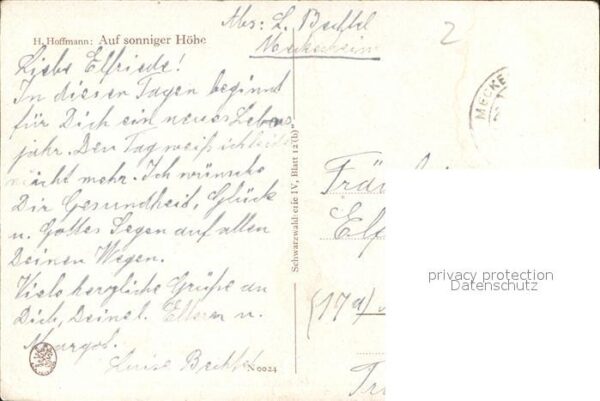 H. Hoffmann: Auf sonniger Höhe
Abs: L. Bechtel
Meckesheim
2
Liebe Elfriede!
In diesen Tagen beginnt
für Dich ein neues Lebens
jahr. Den Tag weiß ich leider
nicht mehr. Ich wünsche
Dir Gesundheit, Glück
u. Gottes Segen auf allen
Deinen Wegen.
Viele herzliche Grüße an
Dich, Deine l. Eltern u.
Margot.
Luise Bechtel
N 0024
Schwarzwaldserie IV, Blatt 12 (b)
MECKE
Fräu
Elf
(17a)
privacy protection
Datenschutz